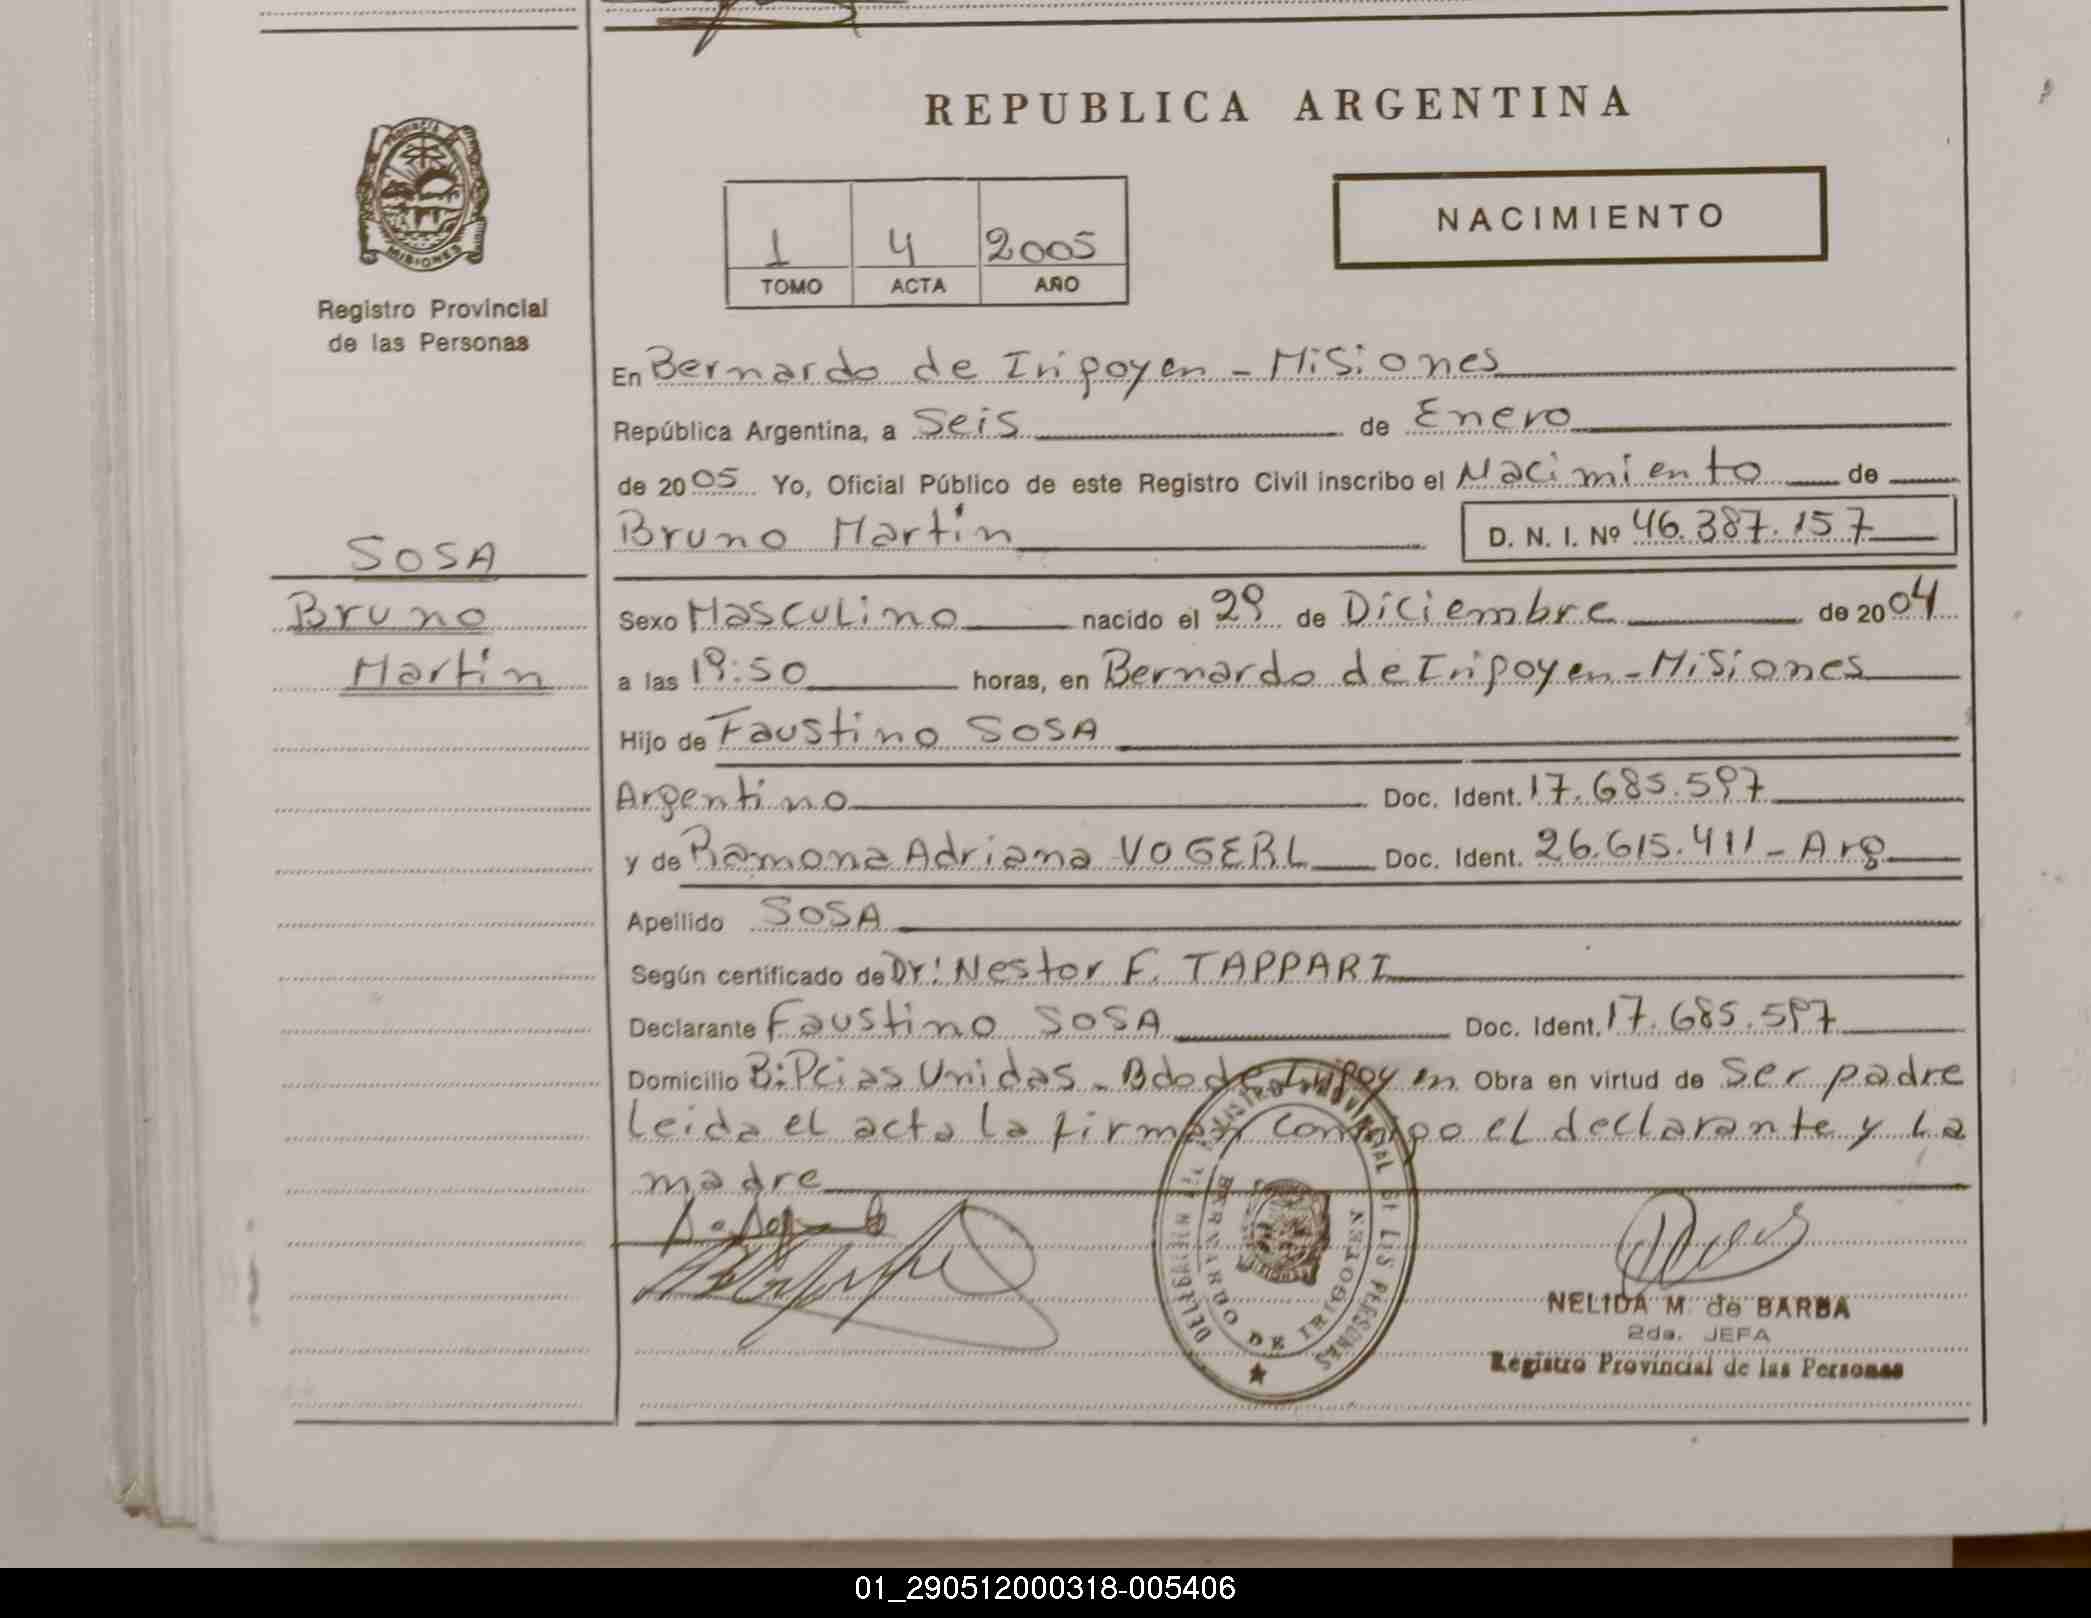 REPUBLICA ARGENTINA
PROVINCIA
MISIONES
Registro Provincial
de las Personas
1 4 2005
TOMO ACTA AÑO
NACIMIENTO
En Bernardo de Irigoyen - Misiones
República Argentina, a Seis de Enero
de 2005 Yo, Oficial Público de este Registro Civil inscribo el Nacimiento de
Bruno Martín D. N. I. Nº 46.387.157
SOSA
Bruno
Martín
Sexo Masculino nacido el 29 de Diciembre de 2004
a las 19:50 horas, en Bernardo de Irigoyen - Misiones
Hijo de Faustino SOSA
Argentino Doc. Ident. 17.685.597
y de Ramona Adriana VOGERL Doc. Ident. 26.615.411 - Arg
Apellido SOSA
Según certificado de Dr: Nestor F. TAPPARI
Declarante Faustino SOSA Doc. Ident. 17.685.597
Domicilio B: Pcias Unidas - Bdo de Irigoyen Obra en virtud de Ser padre
Leida el acta la firman conmigo el declarante y La
madre
DELEGACION DEL REGISTRO PROVINCIAL DE LAS PERSONAS
BERNARDO DE IRIGOYEN
NELIDA M. de BARBA
2da. JEFA
Registro Provincial de las Personas
01_290512000318-005406